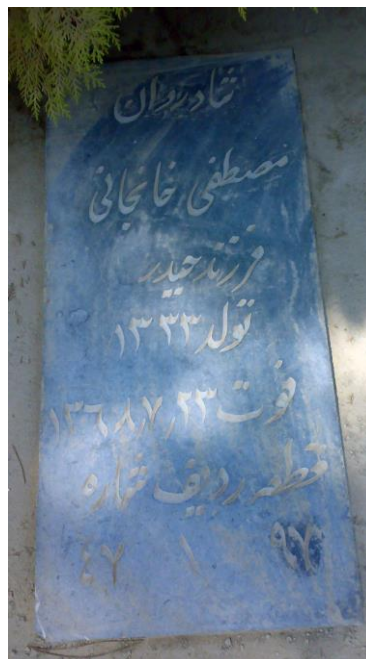 شادروان
مصطفی خانجانی
فرزند حیدر
تولد ۱۳۳۳
فوت ۱۳۶۸٫۷٫۲۳
قطعه ردیف شماره
۹۷ ۱ ۴۷